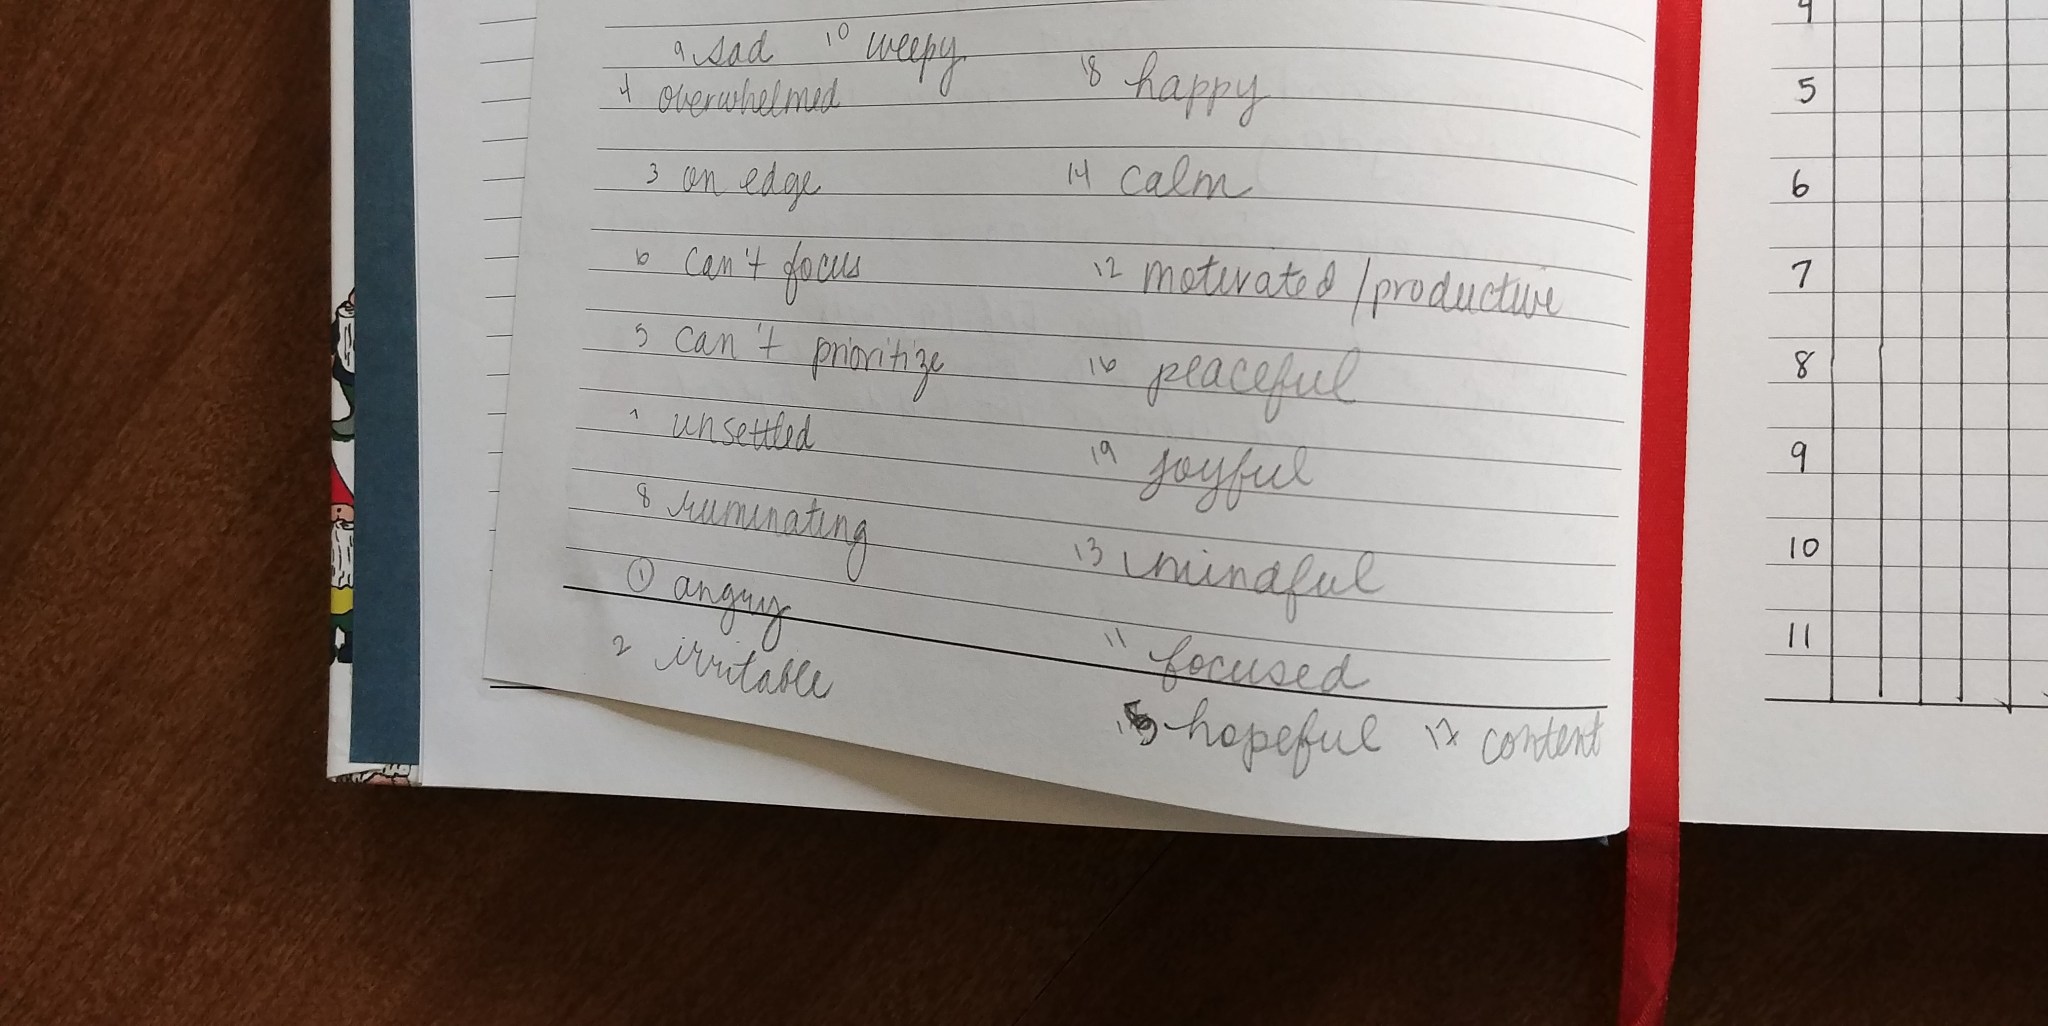 9 sad 10 weepy
4 overwhelmed
18 happy
3 on edge
14 calm
6 can't focus
12 motivated / productive
5 can't prioritize
16 peaceful
7 unsettled
19 joyful
8 ruminating
13 mindful
1 angry
11 focused
2 irritable
15 hopeful 17 content
4
5
6
7
8
9
10
11